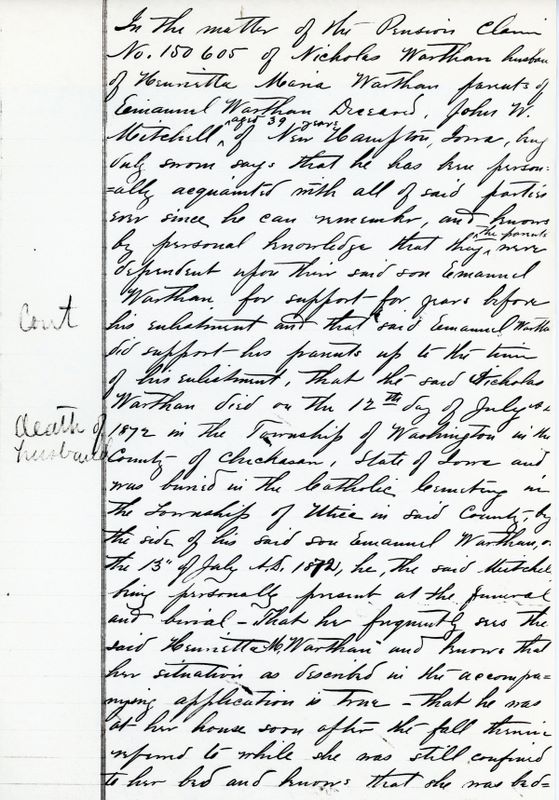 In the matter of the Pension Claim
No. 150605 of Nicholas Warthan husban
of Henrietta Maria Warthan parents of
Emanuel Warthan Deceased, John W.
aged 39 years
Mitchell ^ of New Hampton, Iowa, being
duly sworn says that he has been person=
=ally acquainted with all of said parties
ever since he can remember, and knows
the parents
by personal knowledge that they ^ were
dependent upon their said son Emanuel
Warthan for support for years before
Cont
his enlistment and that said Emanuel Warthan
did support his parents up to the time
of his enlistment, That the said Nicholas
Warthan died on the 12th day of July A.D.
death of
husband
1872 in the Township of Washington in the
County of Chickasaw, State of Iowa and
was buried in the Catholic Cemetery in
the Township of Utica in said County, by
the side of his said son Emanuel Warthan, on
the 13" of July A.D. 1872, he, the said Mitchel
being personally present at the funeral
and burial - That he frequently sees the
said Henrietta M. Warthan and knows that
her situation as described in the accompa=
nying application is true - That he was
at her house soon after the fall therein
referred to while she was still confined
to her bed and knows that she was bed=